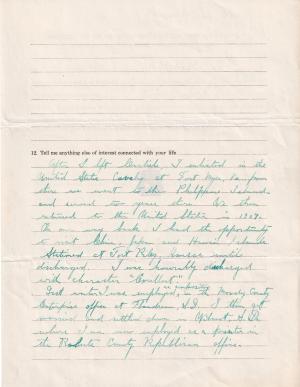 12. Tell me anything else of interest connected with your life
After I left Carlisle I enlisted in the
United States Cavalry at Fort Myer, Va. from
there we went to the Philippine Islands
and served two years there. We then
returned to the United States in 1909.
On our way back I had the opportunity
to visit China, Japan and Hawaii Islands
Stationed at Fort Riley Kansas until
discharged. I was honorably discharged
with character "Excellent".
Last winter I was employed, as pressfeeder in the Moody County
Enterprise office at Flandreau, S.D. I then got
married and settled down in S.D.
where I am now employed as a printer in
the Roberts County Republican office.